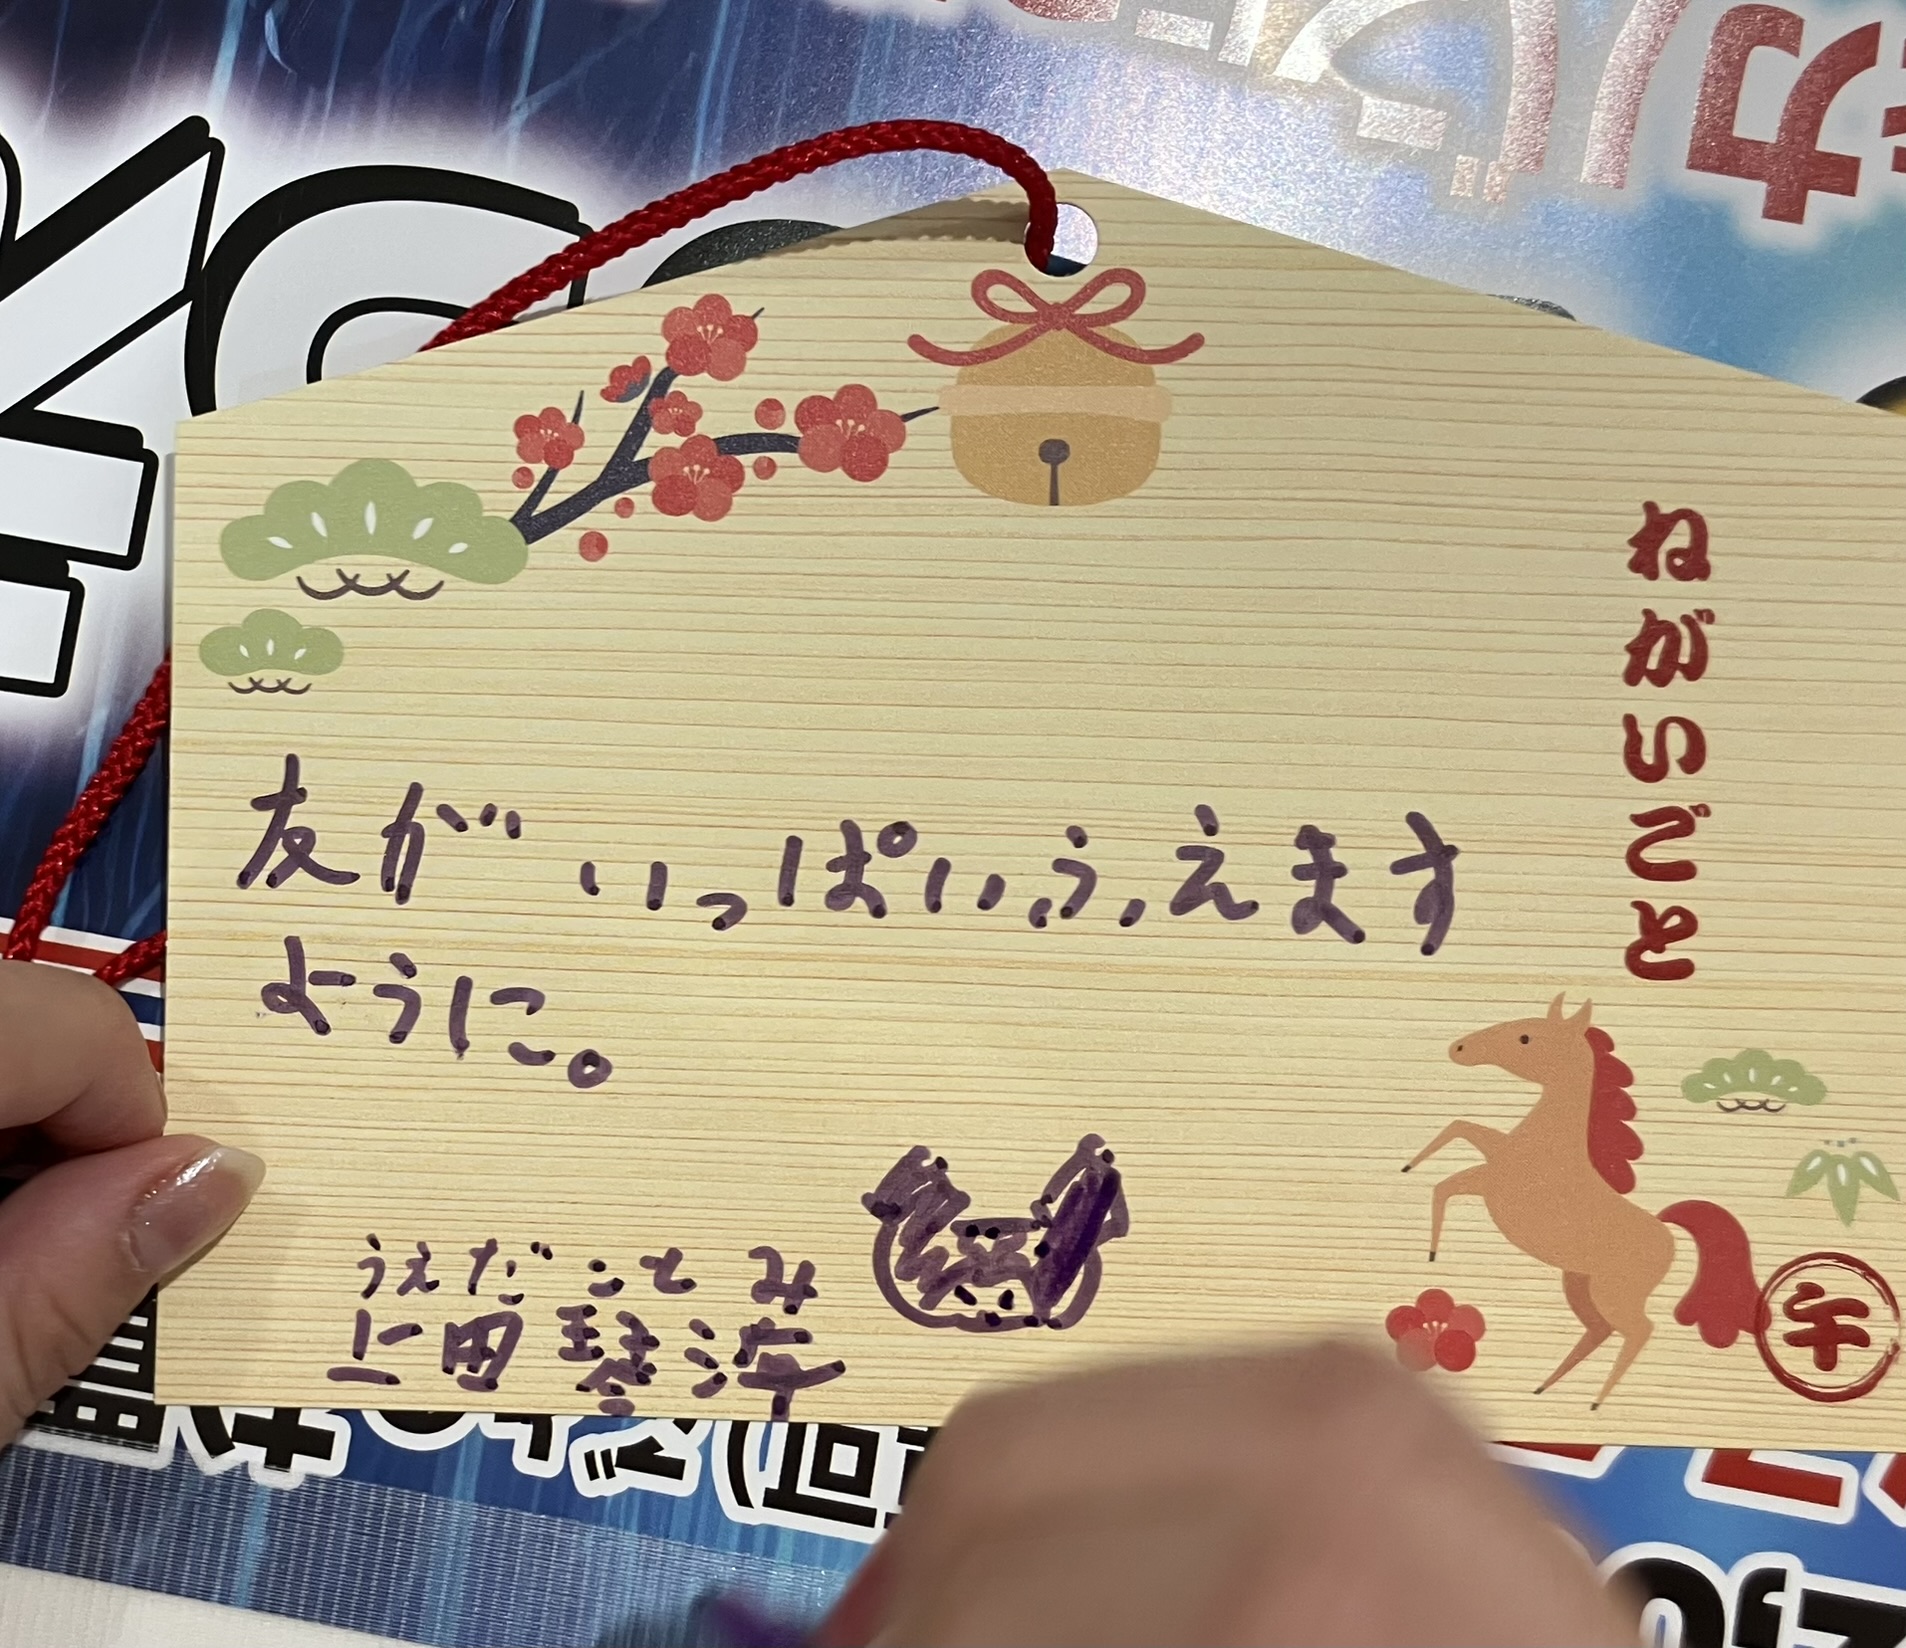 ねがいごと
友がいっぱいふえます
ように。
うえだ ことみ
上田琴海
午